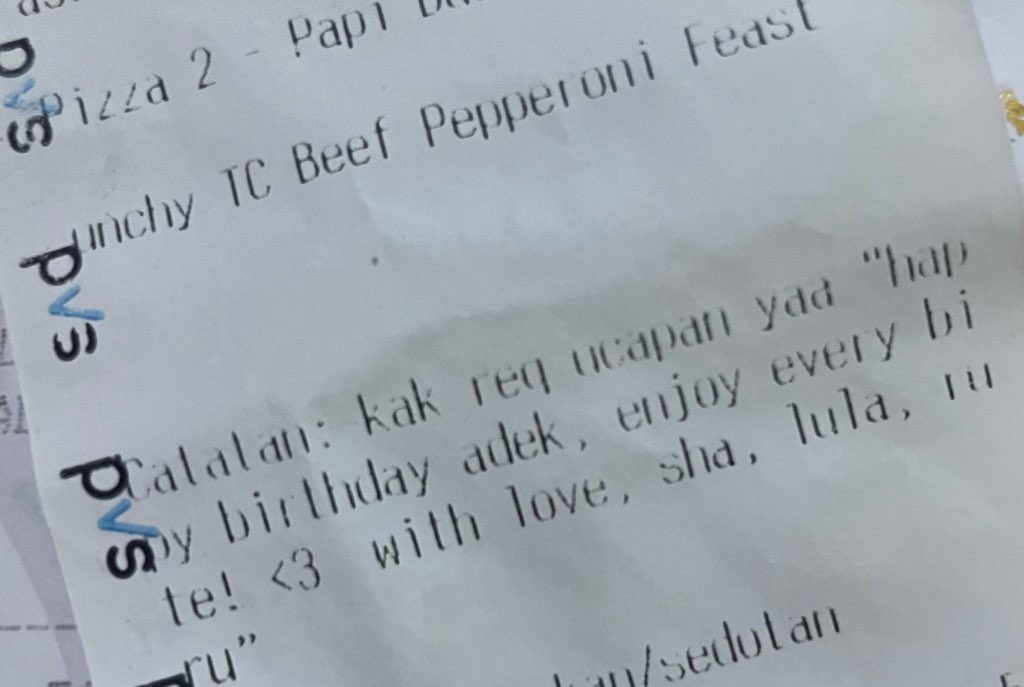 Pizza 2 - Papi
unchy TC Beef Pepperoni Feast
Catatan: kak req ucapan yaa "hap
py birthday adek, enjoy every bi
te! <3 with love, sha, lula, ru
ru"
/sedotan
pvs
pvs
pvs